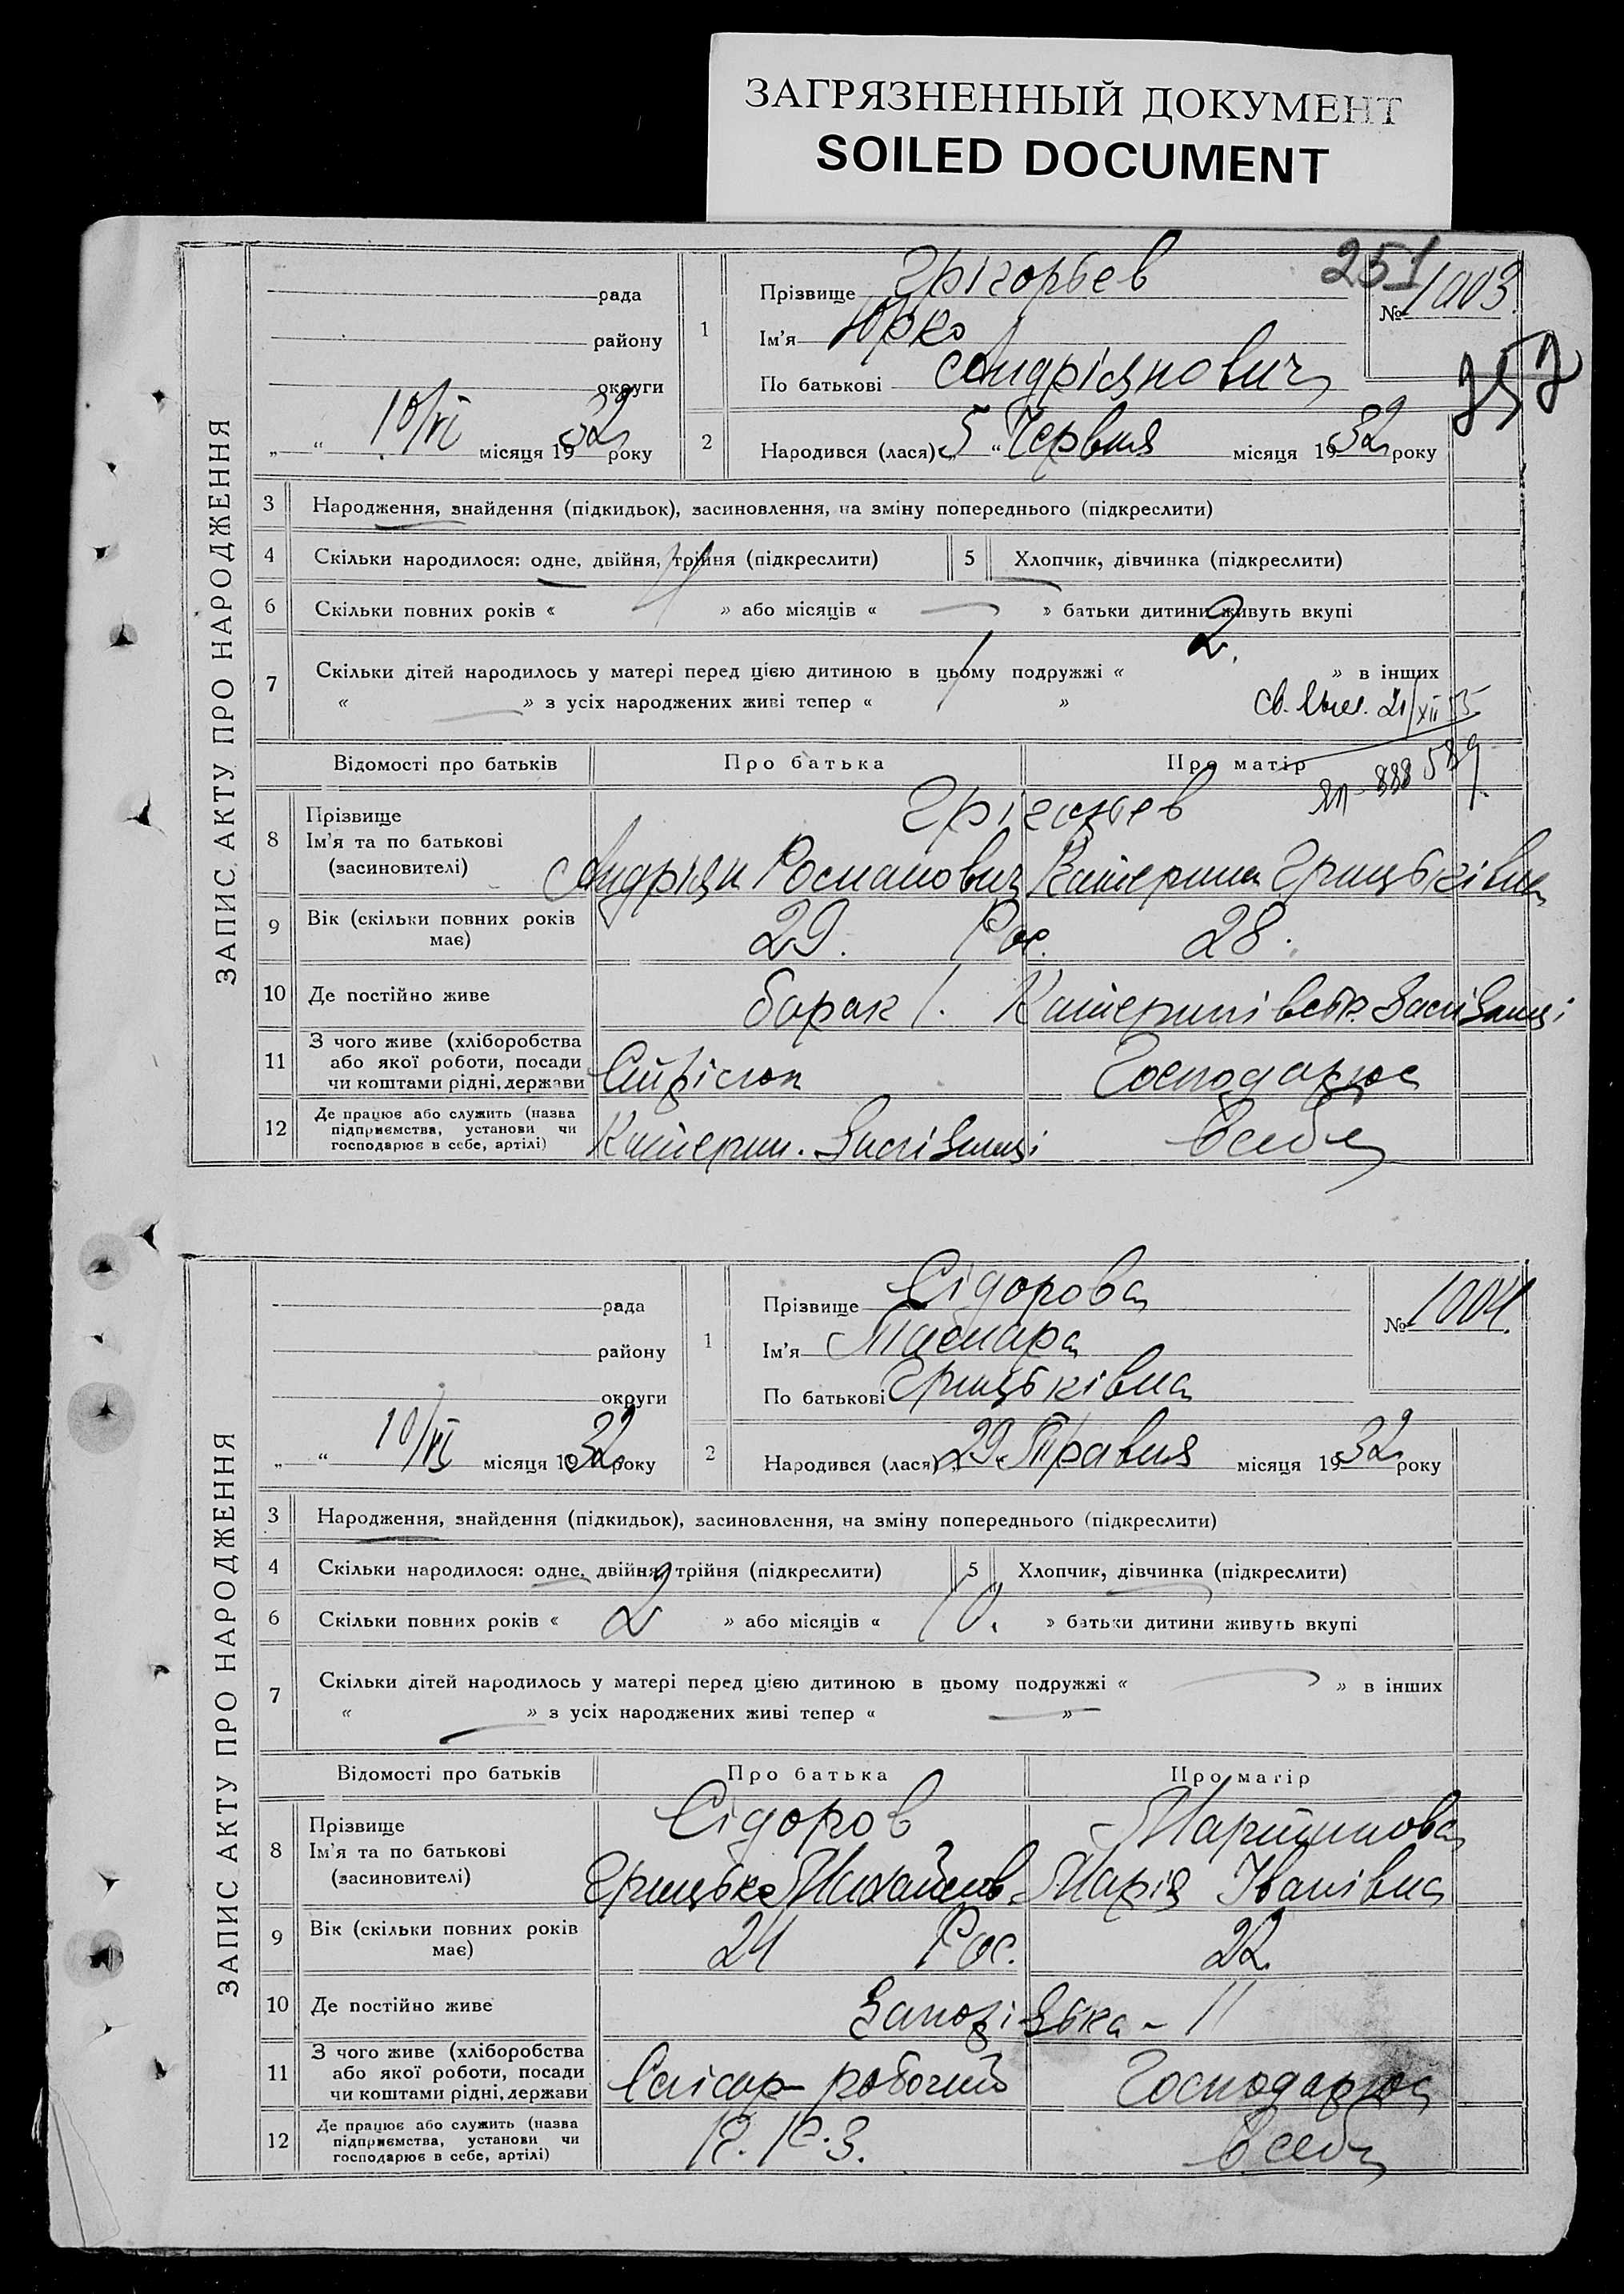 ЗАГРЯЗНЕННЫЙ ДОКУМЕНТ
SOILED DOCUMENT
251
357
ЗАПИС АКТУ ПРО НАРОДЖЕННЯ
рада
району
округи
„ “ 10/VI місяця 1932 року
1
Прізвище Грігорьев
Ім'я Юрко
По батькові Андріянович
№ 1003.
2
Народився (лася) „5“ Червня місяця 1932 року
3 Народження, знайдення (підкидьок), засиновлення, на зміну попереднього (підкреслити)
4 Скільки народилося: одне, двійня, трійня (підкреслити) 5 Хлопчик, дівчинка (підкреслити)
6 Скільки повних років « 4 » або місяців « — » батьки дитини живуть вкупі
7 Скільки дітей народилось у матері перед цією дитиною в цьому подружжі « 2. » в інших
« — » з усіх народжених живі тепер « 1 »
св. 21/XII 55
888 589
Відомості про батьків Про батька Про матір
8 Прізвище
Ім'я та по батькові
(засиновителі)
Грігорьев
Андріян Романович Катерина Грицьківна
9 Вік (скільки повних років має) 29. Рос. 28.
10 Де постійно живе барак 1. Катеринівськ.
11 З чого живе (хліборобства або якої роботи, посади чи коштами рідні, держави Господарює
12 Де працює або служить (назва підприємства, установи чи господарює в себе, артілі) Катерин. в себе
ЗАПИС АКТУ ПРО НАРОДЖЕННЯ
рада
району
округи
„ “ 10/VI місяця 1932 року
1
Прізвище Сідорова
Ім'я Тамара
По батькові Грицьківна
№ 1004.
2
Народився (лася) „29“ Травня місяця 1932 року
3 Народження, знайдення (підкидьок), засиновлення, на зміну попереднього (підкреслити)
4 Скільки народилося: одне, двійня, трійня (підкреслити) 5 Хлопчик, дівчинка (підкреслити)
6 Скільки повних років « 2 » або місяців « 10. » батьки дитини живуть вкупі
7 Скільки дітей народилось у матері перед цією дитиною в цьому подружжі « — » в інших
« — » з усіх народжених живі тепер « — »
Відомості про батьків Про батька Про матір
8 Прізвище
Ім'я та по батькові
(засиновителі)
Сідоров Мартинова
Грицько Михайлов. Марія Іванівна
9 Вік (скільки повних років має) 24 Рос. 22.
10 Де постійно живе Запорізька - 11
11 З чого живе (хліборобства або якої роботи, посади чи коштами рідні, держави Слісар-робочий Господарює
12 Де працює або служить (назва підприємства, установи чи господарює в себе, артілі) К. К. З. в себе